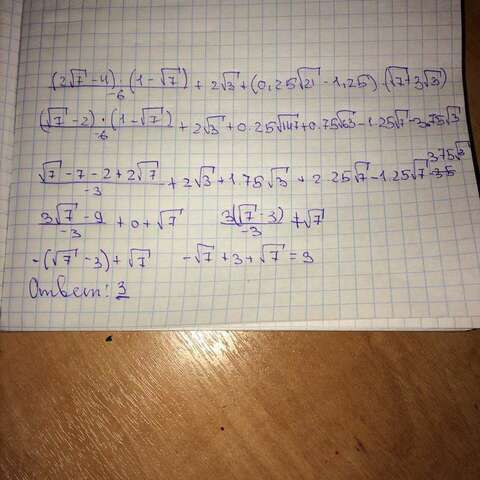 (2√7 - 4) · (1 - √7) / -6 + 2√3 + (0,25√21 - 1,25) · (√7 + 3√3)
(√7 - 2) · (1 - √7) / -6 + 2√3 + 0.25√147 + 0.75√63 - 1.25√7 - 3.75√3
√7 - 7 - 2 + 2√7 / -3 + 2√3 + 1.75√3 + 2.25√7 - 1.25√7 - 3.75√3
3√7 - 9 / -3 + 0 + √7   3(√7 - 3) / -3 + √7
-(√7 - 3) + √7   -√7 + 3 + √7 = 3
Ответ: 3